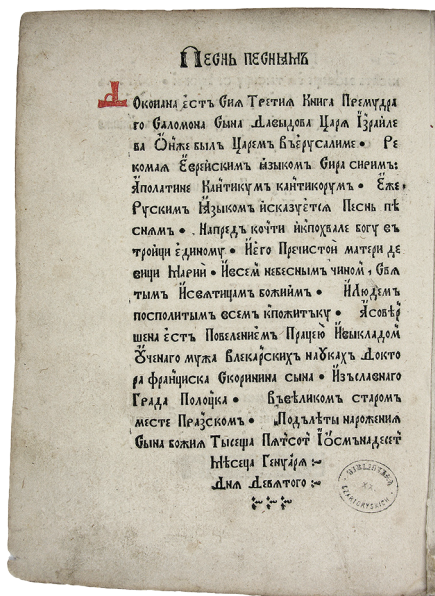 Песнь песнямъ
Доконана ѥстъ Сия Третия Книга Премудра
го Саломона Сына Давыдова Царя Їзраиле
ва Онже былъ Царемъ Въерусалиме • Ре
комая Еврейским языкомъ Сира сирим:
Аполатине Кантикумъ кантикорумъ • Еже
Рускимъ Языкомъ исказуется Песнь пѣ
снямъ • Напредъ кочти икпохвале богу въ
тройци единому • Иего Пречистой матери де
вици Марии • Ивсемъ небеснымъ чином, Свя
тымъ Исвятицамъ божиимъ • Илюдемъ
посполитымъ всемъ кпожитъку • Асовер
шена естъ Повелением Працею Ивыкладом
Ученаго мужа Влекарскихъ науках Докто
ра франциска Скоринина сына • Изъславнаго
Града Полоцка • Въвеликом старом
месте Празском • Подълеты нарожения
Сына божия Тысеща Пятсот Иосмънадесет
Месеца Генъаря :~
Дня Девятого :~
BIBLIOTEKA
XX.
CZARTORYSKICH